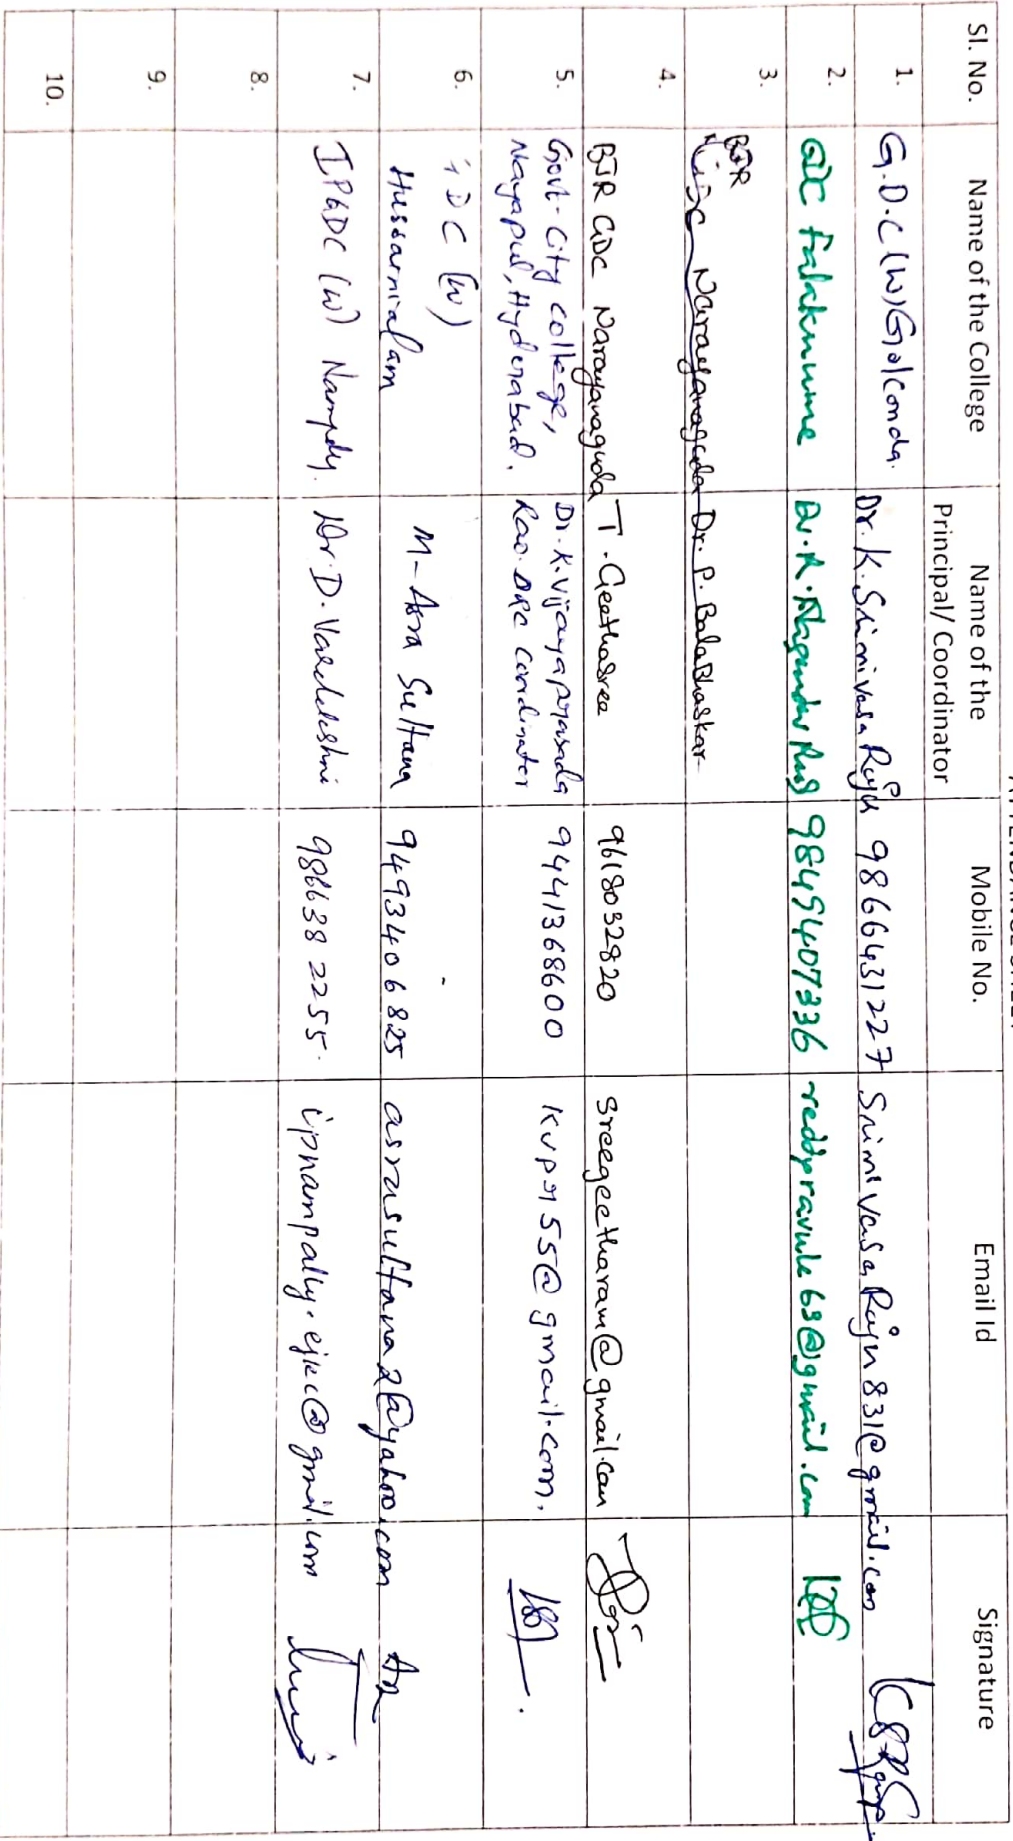 Sl. No. Name of the College Name of the Principal/ Coordinator Mobile No. Email Id Signature
1. G.D.C (W) Golconda. Dr. K. Srinivasa Raju 9866431227 Srinivasa Raju831@gmail.com
2. GDC Falaknuma Dr. R. 9849407336 reddypravule63@gmail.com
3. BJR Narayanaguda Dr. P. BalaBhaskar
4. BJR GDC Narayanaguda T. Geethasree 9618032820 Sreegeetharam@gmail.com
5. Govt. City College, Dr. K. Vijayaprasada 94441368600 kvpr55@gmail.com.
Nayapul, Hyderabad. Rao. DRC Coordinator
6. GDC (W)
Hussainialam M- Asra Sultana 9493406825 asrasultana2@yahoo.com
7. IPGDC (W) Nampally. Dr. D. Varalakshmi 986638 2255. ipnampally.ejkc@gmail.com
8.
9.
10.